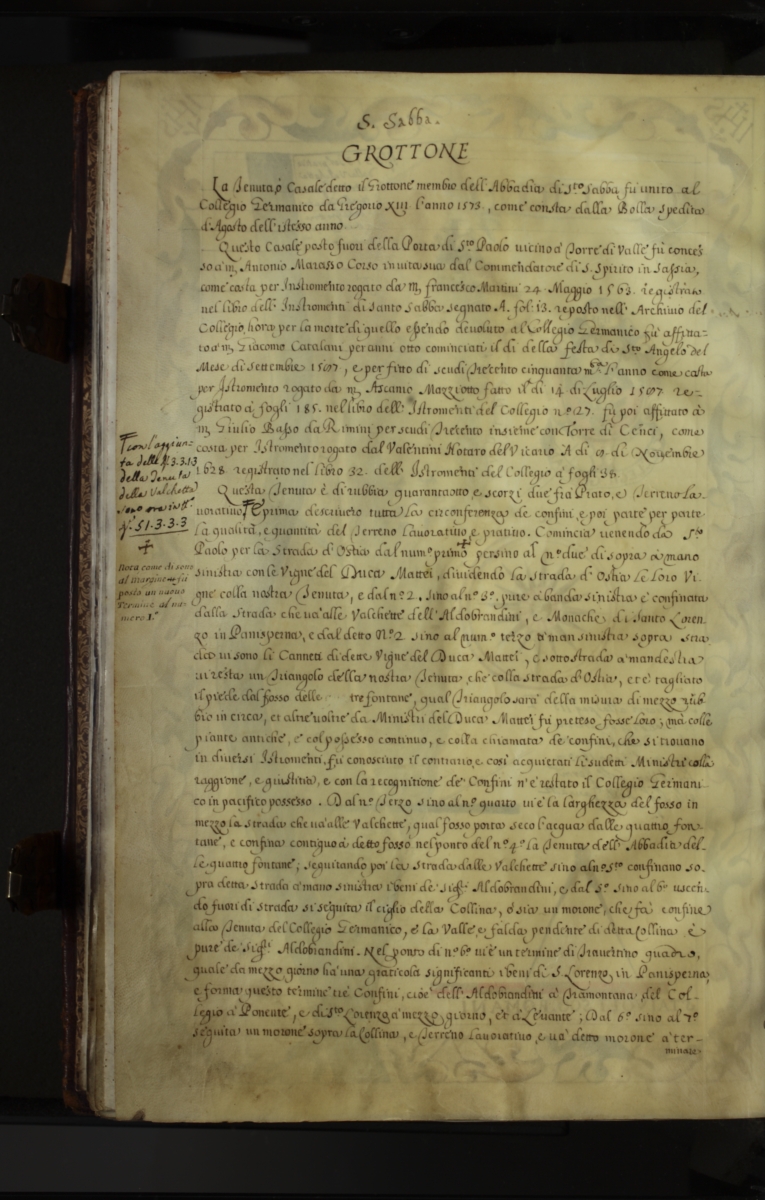 S. Sabba.
GROTTONE
La Tenuta, ò Casale detto il Grottone membro dell' Abbadia di S.to Sabba fù unito al
Collegio Germanico da Gregorio XIII l'anno 1573, come consta dalla Bolla spedita
d'Agosto dell'istesso anno
Questo Casale posto fuori della Porta di S.to Paolo vicino à Torre di Valle fù conces
so à m. Antonio Marasso Corso in vita sua dal Commendatore di S. Spirito in Sassia,
come costa per Instromento rogato da m. francesco Martini 24 Maggio 1563. registrato
nel libro dell' Instromenti di Santo Sabba segnato A. fol: 13. reposto nell' Archivio del
Collegio hora per la morte di quello essendo devoluto al Collegio Germanico fù affitta-
to à m. Giacomo Catalani per anni otto cominciati il di della festa di S.to Angelo del
Mese di Settembre 1587, e per fitto di scudi Trecento cinquanta m.ta l'anno come costa
per Istromento rogato da m. Ascanio Mazziotto fatto il di 14 di Luglio 1587 re-
gistrato à fogli 185. nel libro dell' Istromenti del Collegio n.º 27. fù poi affittato à
m. Giulio Basso da Rimini per scudi Trecento insieme con Torre di Cenci, come
costa per Istromento rogato dal Valentini Notaro del Vicario A di 9 di Novembre
1628 registrato nel libro 32. dell' Istromenti del Collegio à fogli 38
Questa Tenuta è di rubbia quarantotto e scorzi due frà Prato, e Terreno la-
vorativo e prima descrivero tutta la circonferenza de confini, e poi parte per parte
la qualità, e quantità del Terreno Lavorativo, e prativo. Comincia venendo da S.to
Paolo per la Strada d'Ostia dal num.º primo persino al n.º due di sopra à mano
sinistra con le Vigne del Duca Mattei, dividendo la strada d'Ostia le loro Vi-
gne colla nostra Tenuta, e dal n.º 2. sino al n.º 3.º pure à banda sinistra è confinata
dalla strada che và alle Valchette dell' Aldobrandini, e Monache di Santo Loren-
zo in Panisperna, e dal detto N.º 2 sino al num.º terzo à man sinistra sopra stra
da vi sono li Canneti di dette Vigne del Duca Mattei, e sotto strada à man destra
vi resta un Triangolo della nostra Tenuta, che colla strada d'Ostia, et è tagliato
il piede dal fosso delle tre fontane, qual Triangolo sarà della misura di mezzo rub-
bio in circa, et altre volte da Ministri del Duca Mattei fù preteso, fosse loro; mà colle
piante antiche, e col possesso continuo, e colla chiamata de confini, che si trovano
in diversi Istromenti, fù conosciuto il contrario, e così acquietati li sudetti Ministri colla
raggione, e giustitia, e con la recognitione de Confini n'è restato il Collegio Germani-
co in pacifico possesso. Dal n.º Terzo sino al n.º quarto vi è la larghezza del fosso in
mezzo la strada che và alle Valchette, qual fosso porta seco l'acqua dalle quattro fon-
tane, e confina contiguo à detto fosso nel ponto del n.º 4.º la Tenuta dell' Abbadia del-
le quattro fontane; seguitando poi la strada dalle Valchette sino al n.º 5.to confinano so-
pra detta strada à mano sinistra i beni de sig.ri Aldobrandini, e dal 5.º sino al 6.º uscen
do fuori di strada si seguita il ciglio della Collina, ò sia un morone, che fà confine
alla Tenuta del Collegio Germanico, e la Valle e falda pendente di detta Collina è
pure de Sig.ri Aldobrandini. Nel ponto di n.º 6.º vi è un termine di Travertino quadro,
quale da mezzo giorno hà una graticola significanti i beni di S. Lorenzo in Panisperna,
e forma questo termine trè Confini, cioè dell' Aldobrandini à Tramontana del Col-
legio à Ponente, e di S.to Lorenzo à mezzo giorno, et è à Levante; Dal 6.º sino al 7.º
seguita un morone sopra la Collina, e Terreno Lavorativo, e và detto morone à ter-
minare
con l'aggiun-
ta delle q. 3.3.13
della Tenuta
delle Valchette
sono ora in tt.º
q. 51.3.3.3
Nota come di sono
al margine fù
posto un nuovo
Termine al nu-
mero 1.º